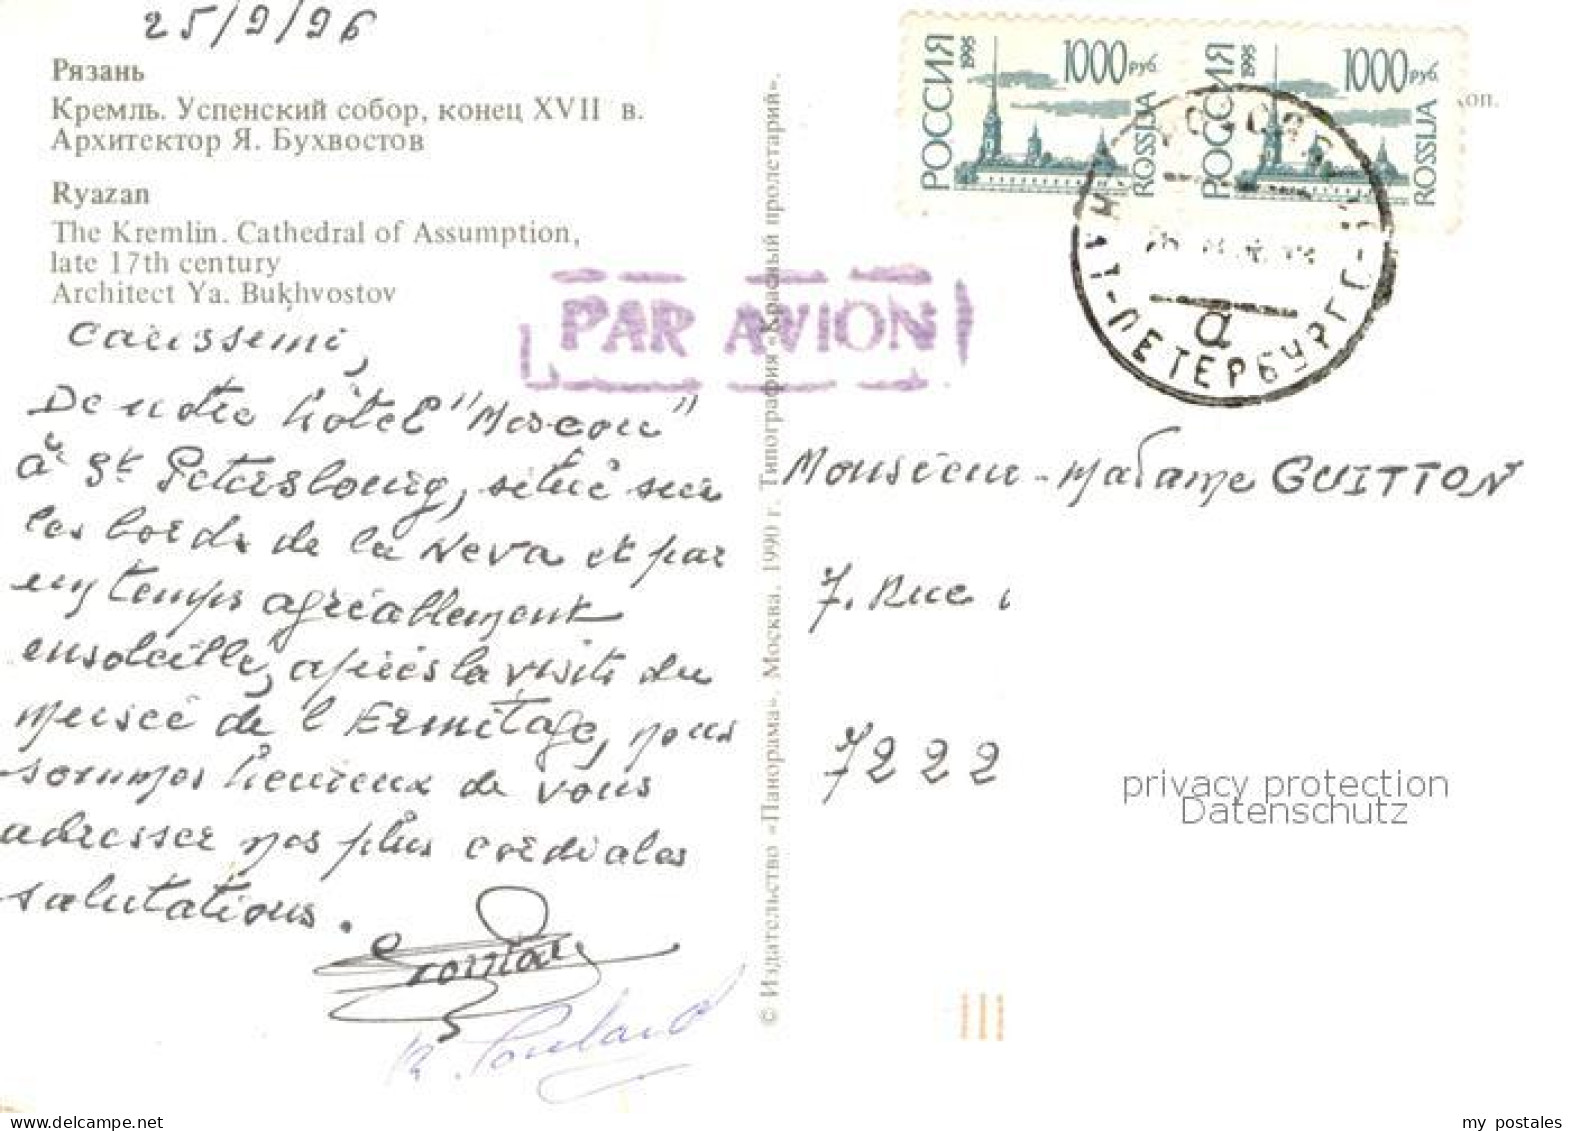 25/9/96
Рязань
Кремль. Успенский собор, конец XVII в.
Архитектор Я. Бухвостов
Ryazan
The Kremlin. Cathedral of Assumption,
late 17th century
Architect Ya. Bukhvostov
De notre hôtel "Moscou"
à St Petersbourg, situé sur
les bords de la Neva et par
un temps agréablement
ensoleillé, après la visite du
musée de l'Ermitage, nous
sommes heureux de vous
adresser nos plus cordiales
salutations.
© Издательство «Панорама». Москва. 1990 г. Типография «Красный пролетарий».
PAR AVION
РОССИЯ 1995 1000 руб. ROSSIJA
РОССИЯ 1995 1000 руб. ROSSIJA
КТ-ПЕТЕРБУРГ
а
коп.
Monsieur-Madame GUITTON
7. Rue
7222
privacy protection
Datenschutz
www.delcampe.net
my_postales